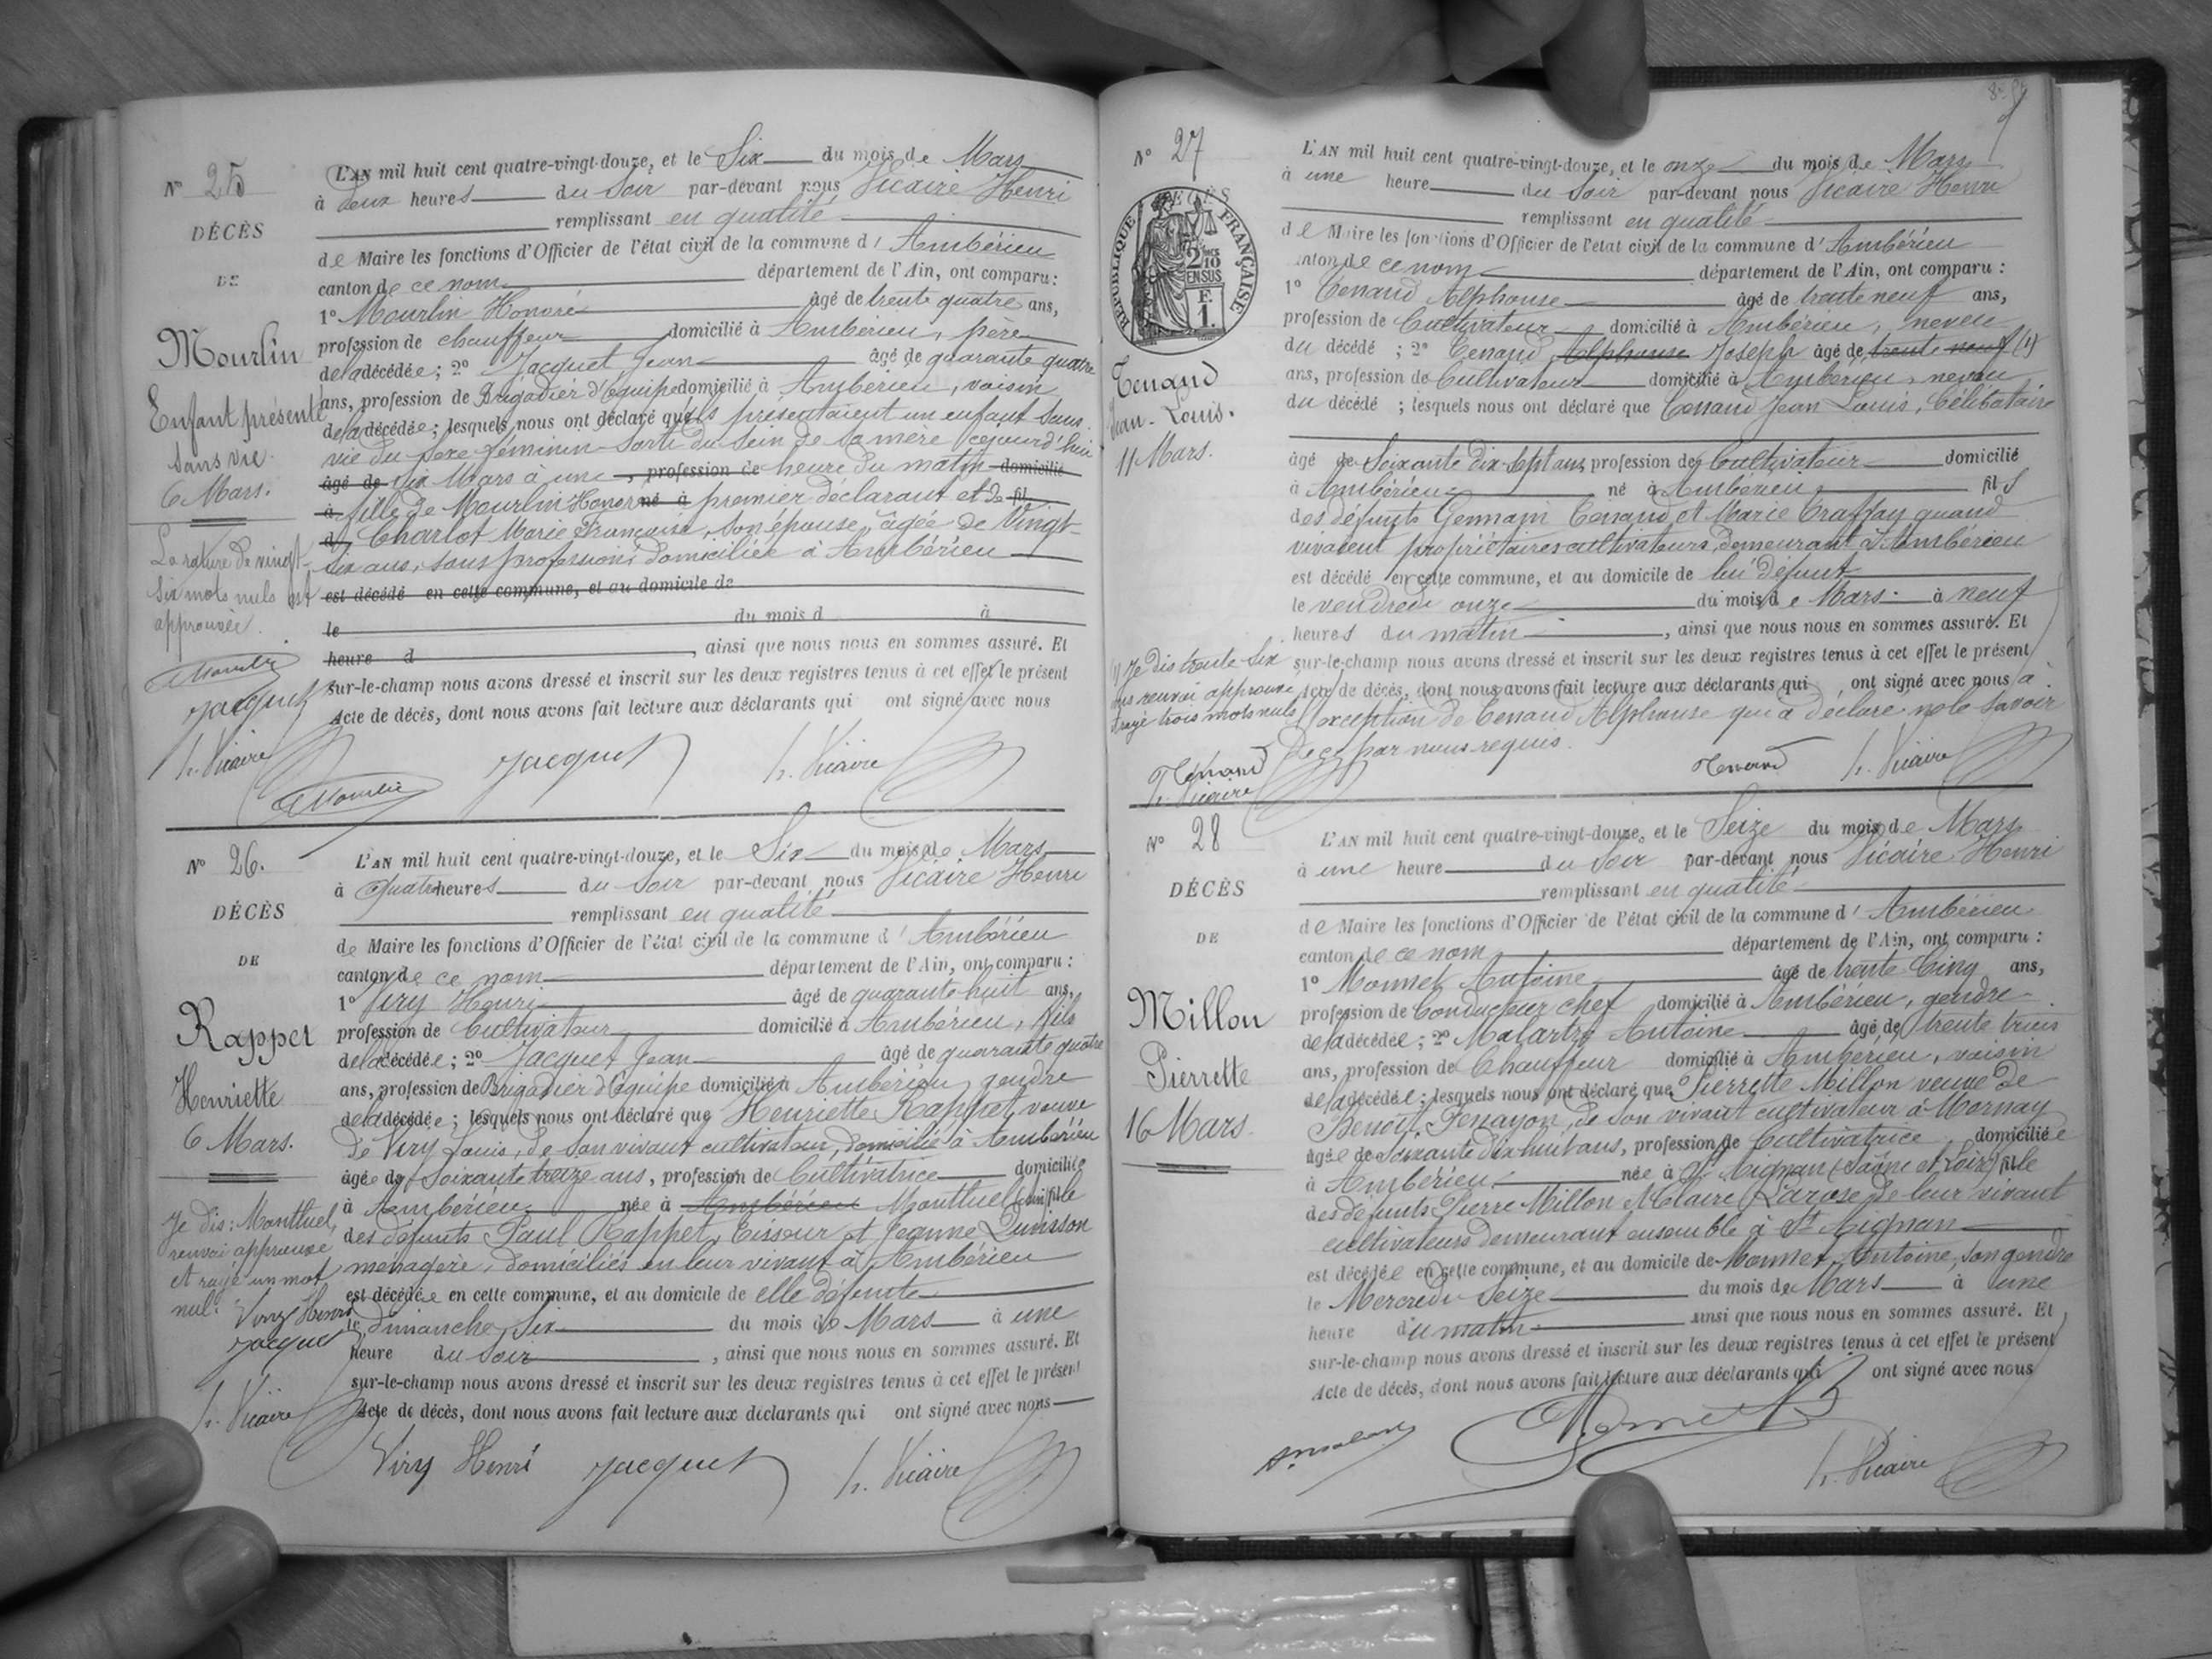 N° 25
DÉCÈS
DE
Mourlin
Enfant présenté
sans vie.
6 Mars.
La rature de vingt-
six mots nuls est
approuvée.
Jacquet
h. Vicaire
L'AN mil huit cent quatre-vingt-douze, et le Six du mois de Mars
à deux heures du Soir par-devant nous Vicaire Henri
remplissant en qualité
de Maire les fonctions d'Officier de l'état civil de la commune d'Ambérieu
canton de ce nom département de l'Ain, ont comparu :
1° Mourlin Honoré âgé de trente quatre ans,
profession de chauffeur domicilié à Ambérieu, père
de la décédée ; 2° Jacquet Jean âgé de quarante quatre
ans, profession de Brigadier d'équipe domicilié à Ambérieu, voisin
de la décédée ; lesquels nous ont déclaré qu'ils présentaient un enfant sans
vie du sexe féminin sorti du sein de sa mère cejourd'hui
âgé de six Mars à une , profession de heure du matin domicilié
à fille de Mourlin Honoré né à premier déclarant et de fil
d Charlot Marie Françoise, son épouse, âgée de Vingt-
six ans, sans profession, domiciliée à Ambérieu
est décédé en cette commune, et au domicile de
le du mois d à
heure d , ainsi que nous nous en sommes assuré. Et
sur-le-champ nous avons dressé et inscrit sur les deux registres tenus à cet effet le présent
Acte de décès, dont nous avons fait lecture aux déclarants qui ont signé avec nous
Jacquet h. Vicaire
N° 26.
DÉCÈS
DE
Rappet
Henriette
6 Mars.
Je dis : Montluel,
renvoi approuvé
et rayé un mot
nul. Viry Henri
Jacquet
h. Vicaire
L'AN mil huit cent quatre-vingt-douze, et le Six du mois de Mars
à Quatre heures du Soir par-devant nous Vicaire Henri
remplissant en qualité
de Maire les fonctions d'Officier de l'état civil de la commune d'Ambérieu
canton de ce nom département de l'Ain, ont comparu :
1° Viry Henri âgé de quarante huit ans,
profession de Cultivateur domicilié à Ambérieu, fils
de la décédée ; 2° Jacquet Jean âgé de quarante quatre
ans, profession de Brigadier d'équipe domicilié à Ambérieu, gendre
de la décédée ; lesquels nous ont déclaré que Henriette Rappet, veuve
de Viry Louis, de son vivant cultivateur, domicilié à Ambérieu
âgée de Soixante treize ans, profession de Cultivatrice domiciliée
à Ambérieu née à Ambérieu Montluel (Ain) fille
des défunts Paul Rappet, Tisseur et Jeanne Quinsson
ménagère, domiciliés en leur vivant à Ambérieu
est décédée en cette commune, et au domicile de elle défunte
le Dimanche, Six du mois de Mars à une
heure du Soir , ainsi que nous nous en sommes assuré. Et
sur-le-champ nous avons dressé et inscrit sur les deux registres tenus à cet effet le présent
Acte de décès, dont nous avons fait lecture aux déclarants qui ont signé avec nous
Viry Henri Jacquet h. Vicaire
N° 27
DÉCÈS
RÉPUBLIQUE FRANÇAISE
2/10
EN SUS
F.
1.
Tenand
Jean-Louis.
11 Mars.
(1) Je dis trente six
ans renvoi approuvé
rayé trois mots nuls
Tenand
h. Vicaire
L'AN mil huit cent quatre-vingt-douze, et le onze du mois de Mars
à une heure du Soir par-devant nous Vicaire Henri
remplissant en qualité
de Maire les fonctions d'Officier de l'état civil de la commune d'Ambérieu
canton de ce nom département de l'Ain, ont comparu :
1° Tenand Alphonse âgé de trente neuf ans,
profession de Cultivateur domicilié à Ambérieu, neveu
du décédé ; 2° Tenand Alphonse Joseph âgé de trente neuf (1)
ans, profession de Cultivateur domicilié à Ambérieu, neveu
du décédé ; lesquels nous ont déclaré que Tenand Jean Louis, Célibataire
âgé de Soixante dix-sept ans profession de Cultivateur domicilié
à Ambérieu né à Ambérieu fils
des défunts Germain Tenand et Marie Traffay quand
vivaient propriétaires cultivateurs demeurant à Ambérieu
est décédé en cette commune, et au domicile de lui défunt
le vendredi onze du mois de Mars à neuf
heures du matin , ainsi que nous nous en sommes assuré. Et
sur-le-champ nous avons dressé et inscrit sur les deux registres tenus à cet effet le présent
Acte de décès, dont nous avons fait lecture aux déclarants qui ont signé avec nous à
l'exception de Tenand Alphonse qui a déclaré ne le savoir
de ce par nous requis.
Tenand h. Vicaire
N° 28
DÉCÈS
DE
Millon
Pierrette
16 Mars
L'AN mil huit cent quatre-vingt-douze, et le Seize du mois de Mars
à une heure du Soir par-devant nous Vicaire Henri
remplissant en qualité
de Maire les fonctions d'Officier de l'état civil de la commune d'Ambérieu
canton de ce nom département de l'Ain, ont comparu :
1° Monnet Antoine âgé de trente Cinq ans,
profession de Conducteur chef domicilié à Ambérieu, gendre
de la décédée ; 2° Malartre Antoine âgé de trente trois
ans, profession de Chauffeur domicilié à Ambérieu, voisin
de la décédée ; lesquels nous ont déclaré que Pierrette Millon veuve de
Benoit Penayon, de son vivant cultivateur à Mornay
âgée de Soixante dix huit ans, profession de Cultivatrice domiciliée
à Ambérieu née à St Aignan (Saône et Loire) fille
des défunts Pierre Millon & Claire Larose de leur vivant
cultivateurs demeurant ensemble à St Aignan
est décédée en cette commune, et au domicile de Monnet Antoine, son gendre
le Mercredi Seize du mois de Mars à une
heure du matin ainsi que nous nous en sommes assuré. Et
sur-le-champ nous avons dressé et inscrit sur les deux registres tenus à cet effet le présent
Acte de décès, dont nous avons fait lecture aux déclarants qui ont signé avec nous
Monnet
h. Vicaire